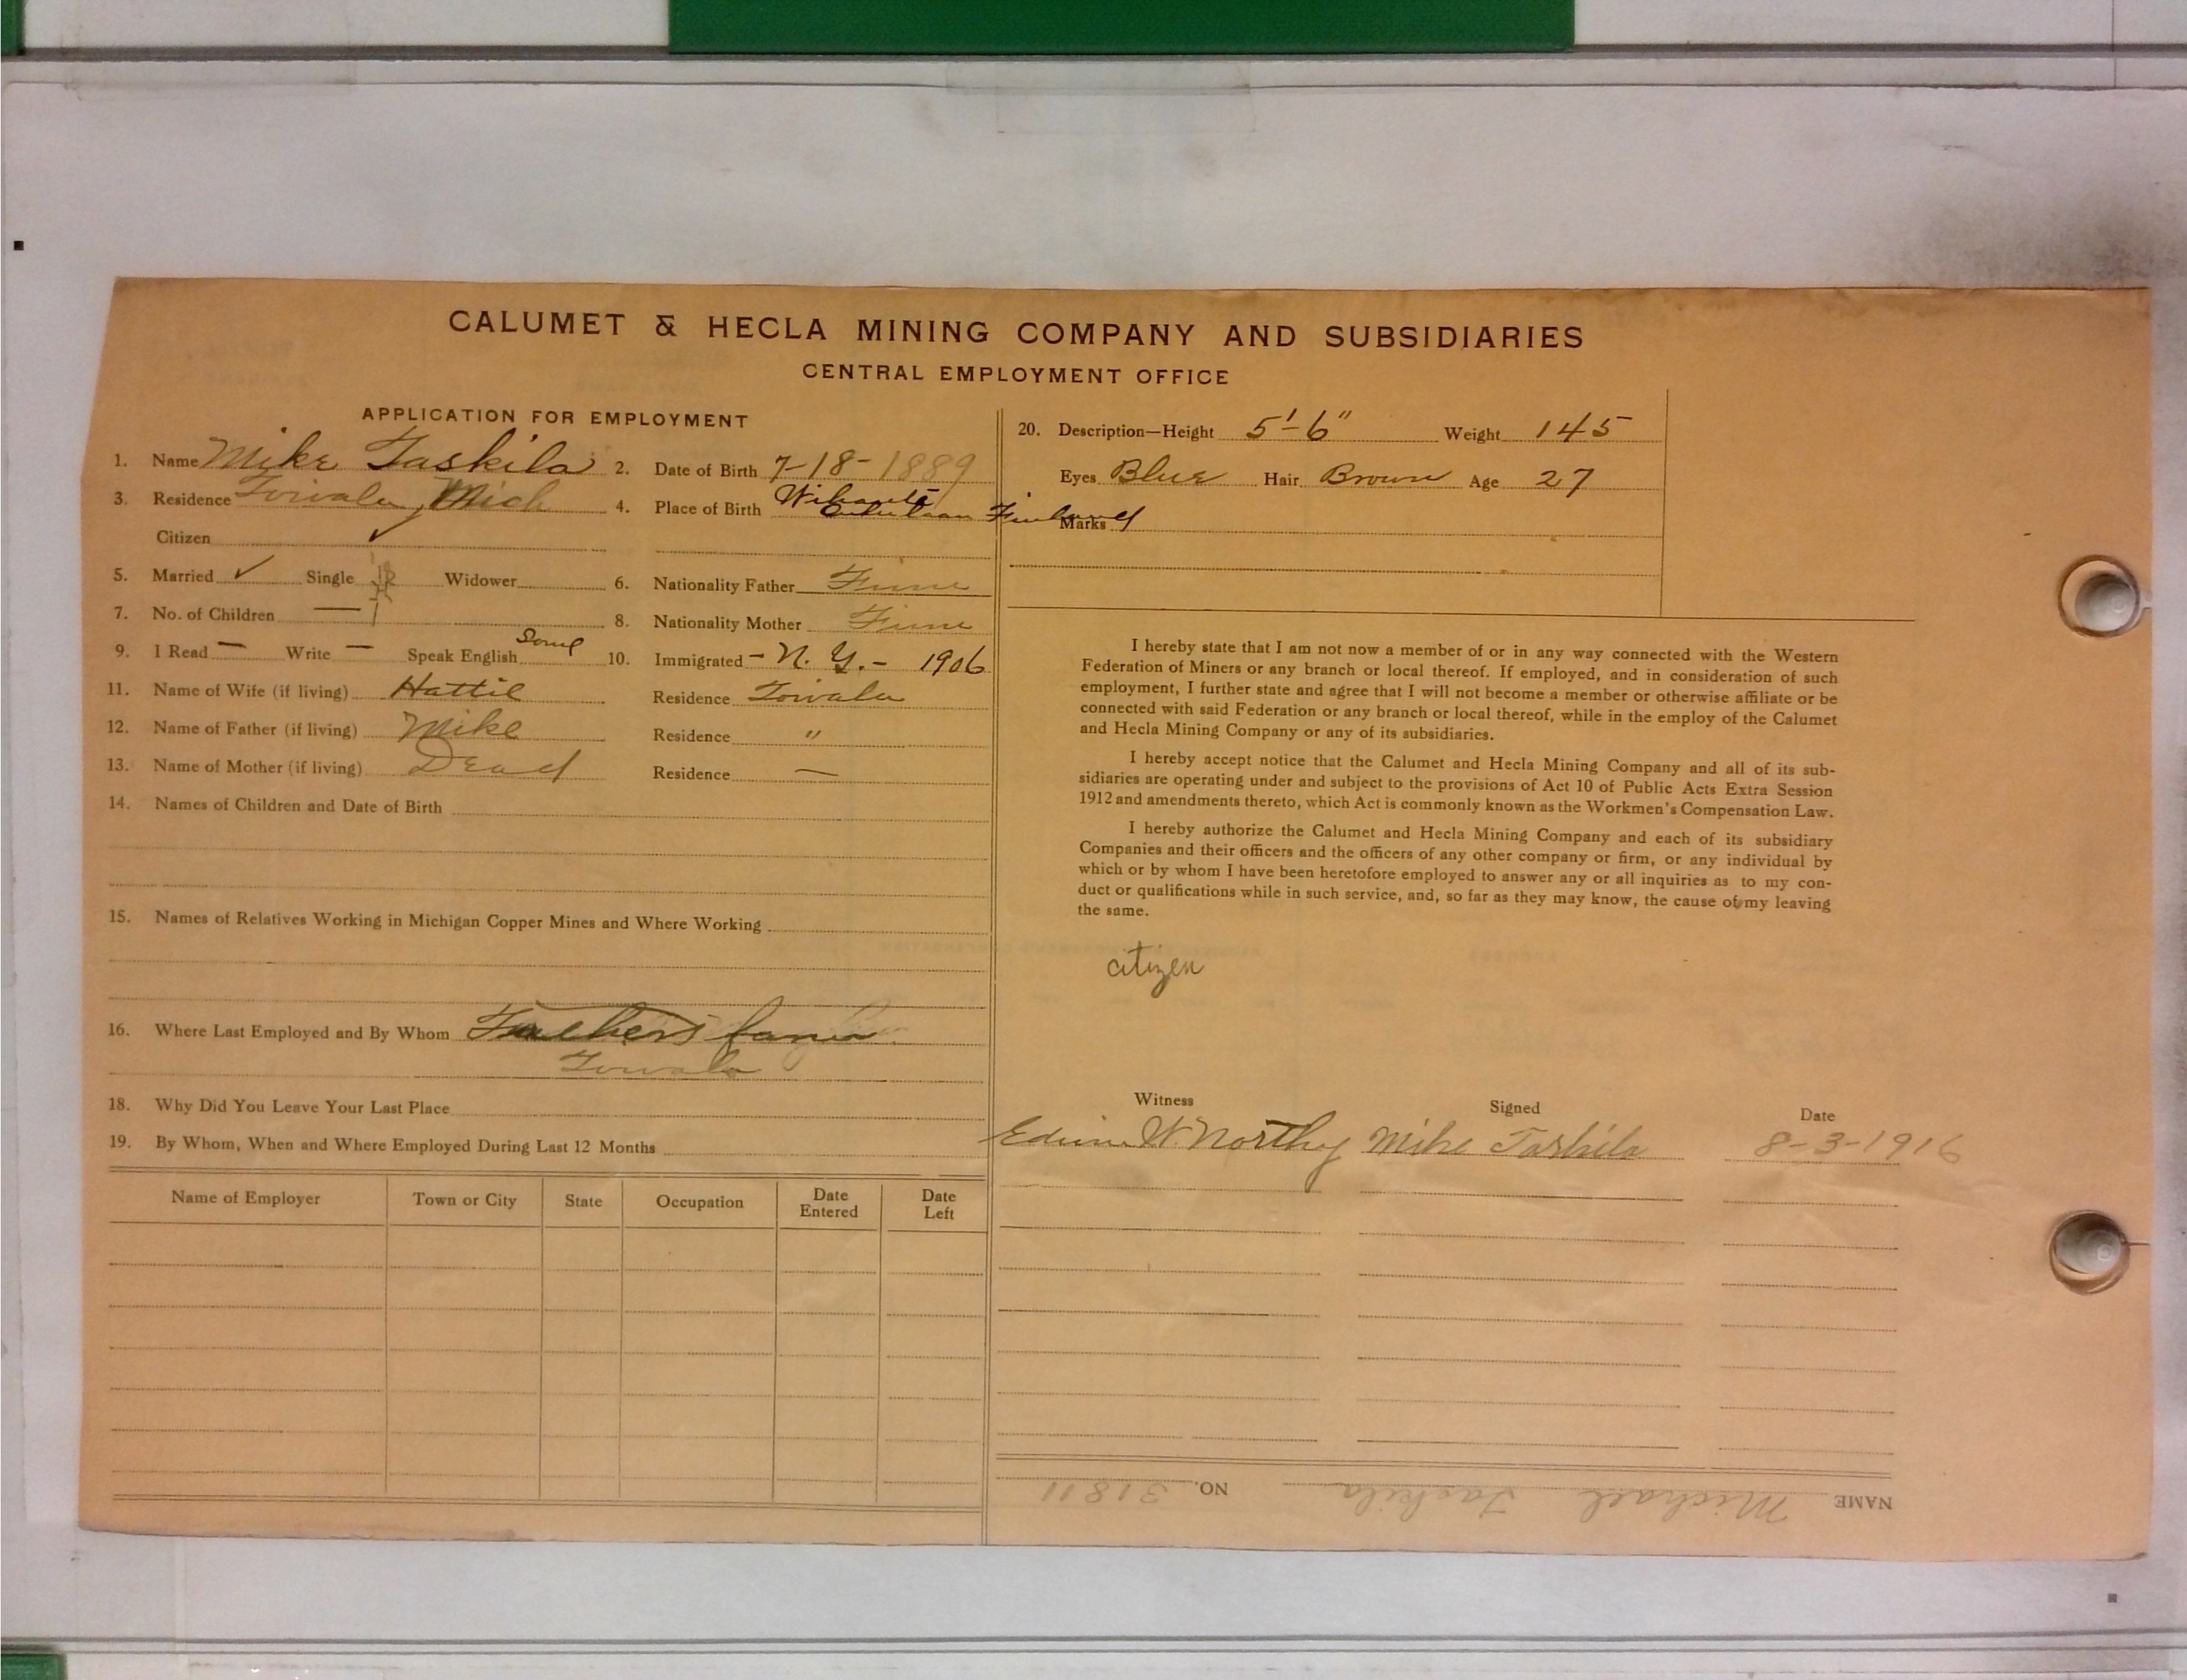 CALUMET & HECLA MINING COMPANY AND SUBSIDIARIES
CENTRAL EMPLOYMENT OFFICE
APPLICATION FOR EMPLOYMENT
1. Name Mike Taskila 2. Date of Birth 7-18-1889
3. Residence Toivola, Mich 4. Place of Birth Finland
Citizen ✓
5. Married ✓ Single Widower 6. Nationality Father Finn
7. No. of Children — 8. Nationality Mother Finn
9. I Read — Write — Speak English Some 10. Immigrated - N. Y. - 1906
11. Name of Wife (if living) Hattie Residence Toivola
12. Name of Father (if living) Mike Residence "
13. Name of Mother (if living) Dead Residence —
14. Names of Children and Date of Birth
15. Names of Relatives Working in Michigan Copper Mines and Where Working
16. Where Last Employed and By Whom Fathers farm.
Toivola
18. Why Did You Leave Your Last Place
19. By Whom, When and Where Employed During Last 12 Months
Name of Employer Town or City State Occupation Date Entered Date Left
20. Description—Height 5'-6" Weight 145
Eyes Blue Hair Brown Age 27
Marks
I hereby state that I am not now a member of or in any way connected with the Western
Federation of Miners or any branch or local thereof. If employed, and in consideration of such
employment, I further state and agree that I will not become a member or otherwise affiliate or be
connected with said Federation or any branch or local thereof, while in the employ of the Calumet
and Hecla Mining Company or any of its subsidiaries.
I hereby accept notice that the Calumet and Hecla Mining Company and all of its sub-
sidiaries are operating under and subject to the provisions of Act 10 of Public Acts Extra Session
1912 and amendments thereto, which Act is commonly known as the Workmen's Compensation Law.
I hereby authorize the Calumet and Hecla Mining Company and each of its subsidiary
Companies and their officers and the officers of any other company or firm, or any individual by
which or by whom I have been heretofore employed to answer any or all inquiries as to my con-
duct or qualifications while in such service, and, so far as they may know, the cause of my leaving
the same.
citizen
Witness Signed Date
Edwin W. Northy Mike Taskila 8-3-1916
NAME Michael Taskila NO. 31811